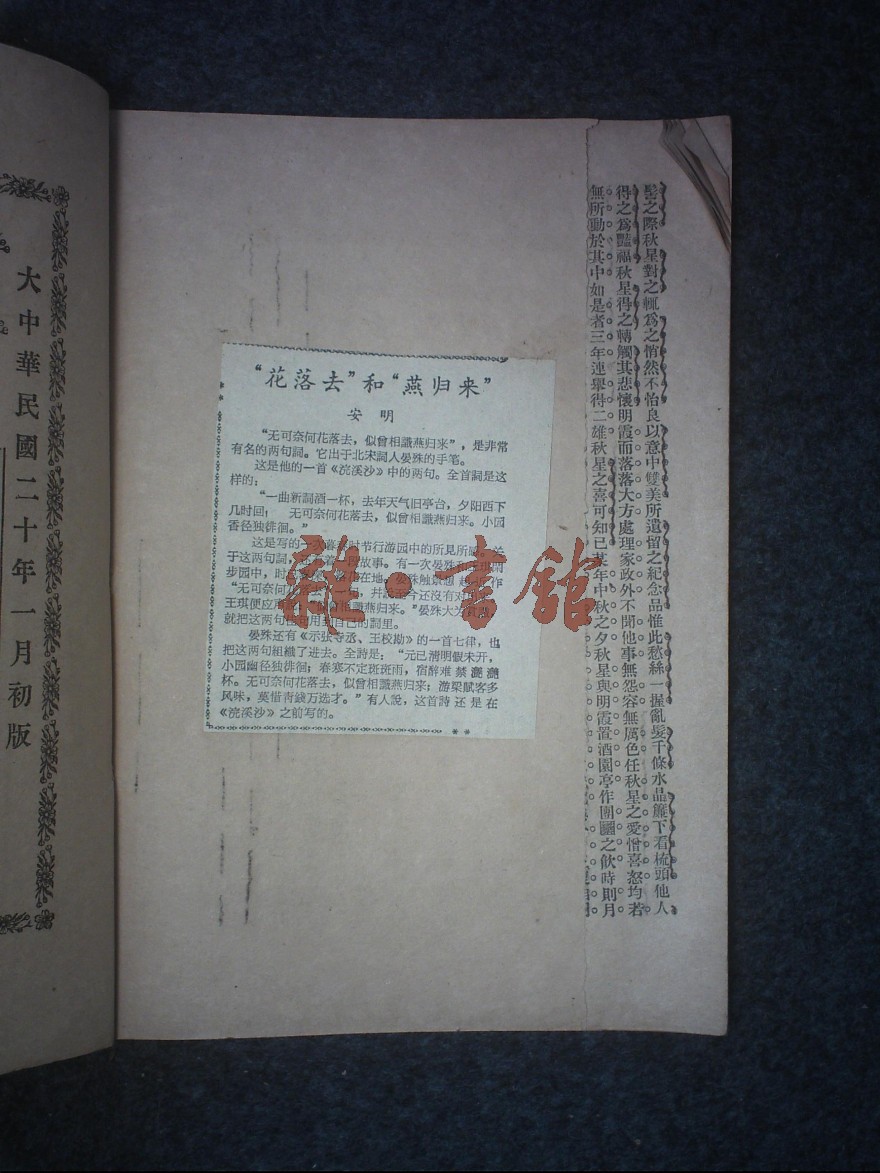 髻之際秋星對之輒爲之悄然不怡良以意中雙美所遺留之紀念品惟此愁絲一握亂髮千條水晶簾下看梳頭他人
得之爲豔福秋星得之轉觸其悲懷明霞而落落大方處理家政外不聞他事無怨容無厲色任秋星之愛憎喜怒均若
無所動於其中如是者三年連舉得二雄秋星之喜可知已某年中秋之夕秋星與明霞置酒園亭作團圞之飲時則月
“花落去”和“燕归来”
安明
“无可奈何花落去，似曾相識燕归来”，是非常
有名的两句詞。它出于北宋詞人晏殊的手笔。
这是他的一首《浣溪沙》中的两句。全首詞是这
样的：
“一曲新詞酒一杯，去年天气旧亭台，夕阳西下
几时回；　无可奈何花落去，似曾相識燕归来。小园
香径独徘徊。”
这是写的一次暮春时节行游园中的所見所
于这两句詞，故事。有一次晏殊和王琪同
步园中，时在地，晏殊触景
“无可奈何花今还沒有对
王琪便应相識燕归来。”晏殊大为
就把这两句用到自己的詞里。
晏殊还有《示张寺丞、王校勘》的一首七律，也
把这两句組織了进去。全詩是：“元已清明假未开，
小园幽径独徘徊；春寒不定斑斑雨，宿醉难禁灔灔
杯。无可奈何花落去，似曾相識燕归来；游梁賦客多
风味，莫惜青錢万选才。”有人說，这首詩还是在
《浣溪沙》之前写的。
雜·書館
大中華民國二十年一月初版